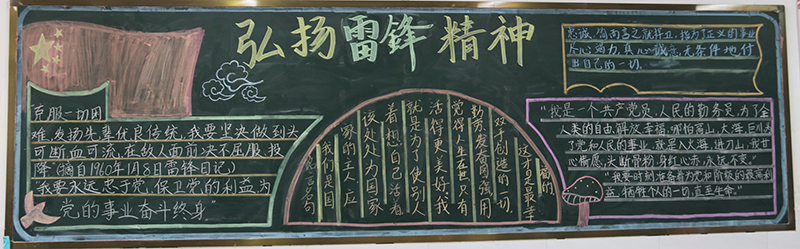 弘扬雷锋精神
克服一切困
难,发扬先辈优良传统。我要坚决做到头
可断血可流,在敌人面前决不屈服投
降(摘自1960年1月8日雷锋日记)
"我要永远忠于党,保卫党的利益为
党的事业奋斗终身"
雷锋名言名句
我们是国
家的主人,应
该处处为国家
着想
自己活着,
就是为了使别人
活得更美好。我
觉得人生在世,只有
勤劳,发奋图强,用
双手创造的一切,
这才是最幸
福的
忠诚,简而言之就是
为了正义的事业
尽心竭力,真心诚意,无条件地付
出自己的一切.
"我是一个共产党员,人民的勤务员,为了全
人类的自由、解放、幸福,哪怕高山、大海、巨川,为
了党和人民的事业,就是入大海,进刀山,我甘
心情愿,头断骨粉,身红心赤,永远不变。"
"我要时刻准备着为党和阶级的最高利
益,牺牲个人的一切,直至生命。"